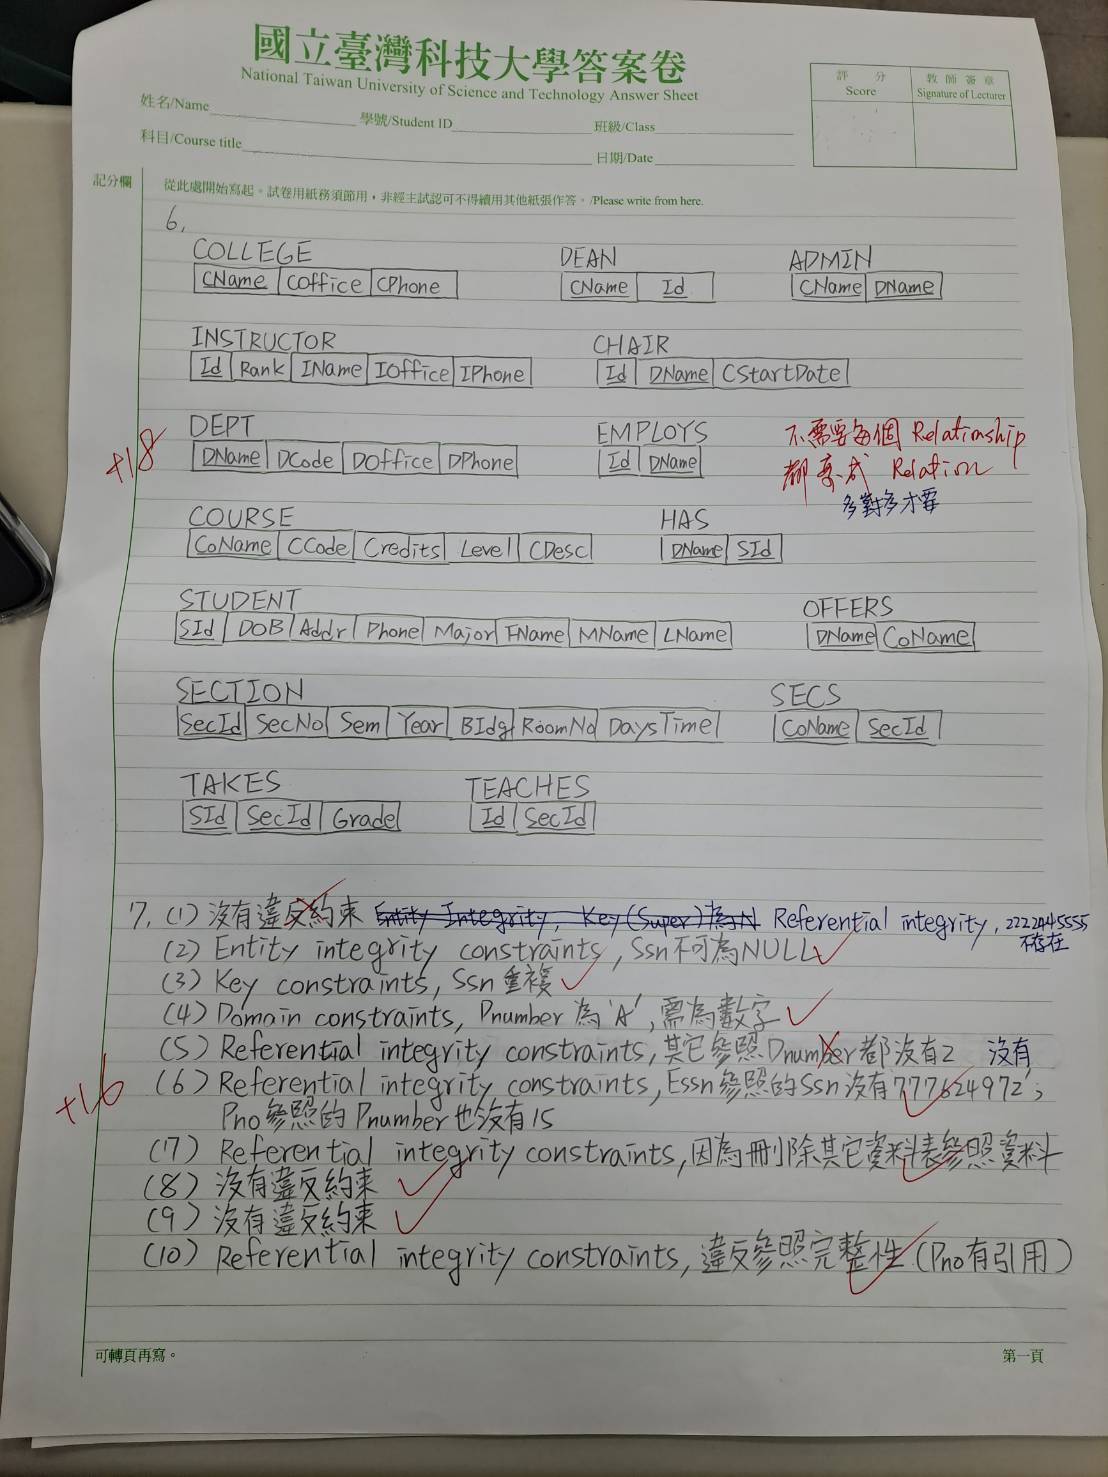 國立臺灣科技大學答案卷
National Taiwan University of Science and Technology Answer Sheet
評分 Score
教師簽章 Signature of Lecturer
姓名/Name
學號/Student ID
班級/Class
科目/Course title
日期/Date
記分欄
從此處開始寫起。試卷用紙務須節用,非經主試認可不得續用其他紙張作答。/Please write from here.
6.
COLLEGE DEAN ADMIN
CName COffice CPhone CName Id CName DName
INSTRUCTOR CHAIR
Id Rank IName IOffice IPhone Id DName CStartDate
DEPT EMPLOYS 不需要每個 Relationship
+18 DName DCode DOffice DPhone Id DName 都寫成 Relation
多對多才要
COURSE HAS
CoName CCode Credits Level CDesc DName SId
STUDENT OFFERS
SId DOB Addr Phone Major FName MName LName DName CoName
SECTION SECS
SecId SecNo Sem Year Bldg RoomNo DaysTime CoName SecId
TAKES TEACHES
SId SecId Grade Id SecId
7. (1) 沒有違反約束 Entity Integrity, Key (Super) 為 Referential integrity, 2222445555
不存在
(2) Entity integrity constraints, Ssn不可為NULL
(3) Key constraints, Ssn重複
(4) Domain constraints, Pnumber 為 'A', 需為數字
(5) Referential integrity constraints, 其它參照Dnumber都沒有2 沒有
+16 (6) Referential integrity constraints, Essn參照的Ssn沒有'777624972';
Pno參照的Pnumber也沒有15
(7) Referential integrity constraints, 因為刪除其它資料表參照資料
(8) 沒有違反約束
(9) 沒有違反約束
(10) Referential integrity constraints, 違反參照完整性 (Pno有引用)
可轉頁再寫。
第一頁